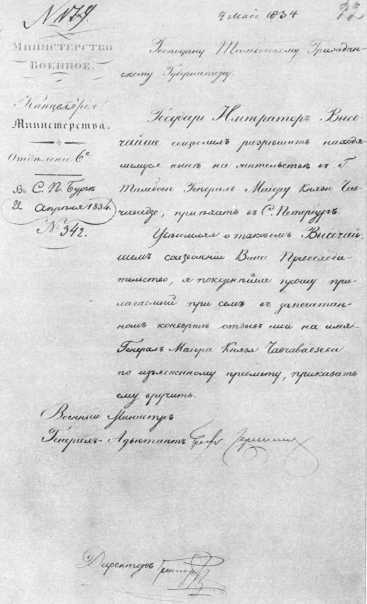 9 Мая 1834
Министерство
Военное.
Канцелярія
Министерства.
Отделеніе 6е
въ С. П. Бургѣ
21 апрѣля 1834.
№ 342.
Господину Тамбовскому Граждан-
скому Губернатору.
Государь Императоръ Высо-
чайше соизволилъ разрѣшить находя-
щемуся нынѣ на жительствѣ въ Г.
Тамбовѣ Генералъ Маіору Князю Чав-
чевадзе, пріѣхать въ С. Петербургъ.
Увѣдомляя о таковомъ Высочай-
шемъ соизволеніи Ваше Превосходи-
тельство, я покорнѣйше прошу при-
лагаемый при семъ въ запечатан-
номъ конвертѣ отзывъ мой на имя
Генералъ Маіора Князя Чавчавадзе
по изъясненному предмету, приказать
ему вручить.
Военный Министръ
Генералъ-Адъютантъ Графъ Чернышевъ
Директоръ